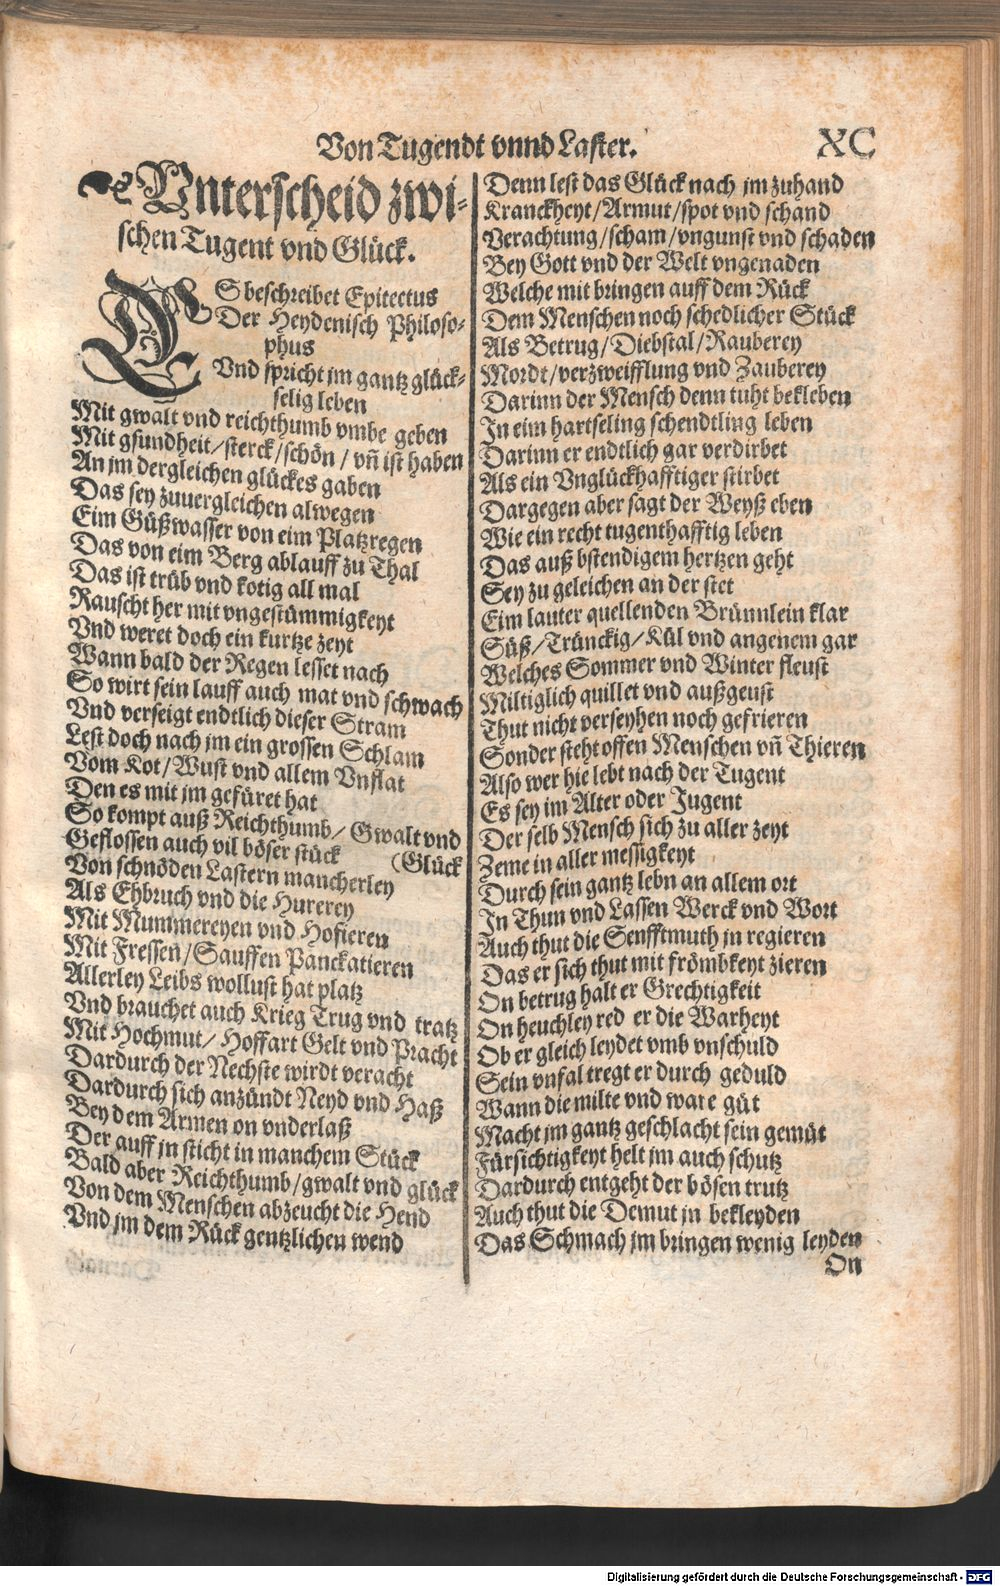 Von Tugendt vnnd Laster.
XC
Vnterscheid zwi-
schen Tugent vnd Glück.
ES beschreibet Epitectus
Der Heydenisch Philoso-
phus
Vnd spricht jm gantz glück-
selig leben
Mit gwalt vnd reichthumb vmbe geben
Mit gsundheit/sterck/schön/vñ ist haben
An jm dergleichen glückes gaben
Das sey zuuergleichen alwegen
Eim Güßwasser von eim Platzregen
Das von eim Berg ablauff zu Thal
Das ist trüb vnd kotig all mal
Rauscht her mit vngestümmigkeyt
Vnd weret doch ein kurtze zeyt
Wann bald der Regen lesset nach
So wirt sein lauff auch mat vnd schwach
Vnd verseigt endtlich dieser Stram
Lest doch nach jm ein grossen Schlam
Vom Kot/Wust vnd allem Vnflat
Den es mit jm gefüret hat
So kompt auß Reichthumb/Gwalt vnd
Geflossen auch vil böser stück (Glück
Von schnöden Lastern mancherley
Als Ehbruch vnd die Hurerey
Mit Mummereyen vnd Hofieren
Mit Fressen/Sauffen Panckatieren
Allerley Leibs wollust hat platz
Vnd brauchet auch Krieg Trug vnd tratz
Mit Hochmut/Hoffart Gelt vnd Pracht
Dardurch der Nechste wirdt veracht
Dardurch sich anzündt Neyd vnd Haß
Bey dem Armen on vnderlaß
Der auff jn sticht in manchem Stück
Bald aber Reichthumb/gwalt vnd glück
Von dem Menschen abzeucht die Hend
Vnd jm dem Rück gentzlichen wend
Denn lest das Glück nach jm zuhand
Kranckheyt/Armut/spot vnd schand
Verachtung/scham/vngunst vnd schaden
Bey Gott vnd der Welt vngenaden
Welche mit bringen auff dem Rück
Dem Menschen noch schedlicher Stück
Als Betrug/Diebstal/Rauberey
Mordt/verzweifflung vnd Zauberey
Darinn der Mensch denn tuht bekleben
In eim hartseling schendtling leben
Darinn er endtlich gar verdirbet
Als ein Vnglückhafftiger stirbet
Dargegen aber sagt der Weyß eben
Wie ein recht tugenthafftig leben
Das auß bstendigem hertzen geht
Sey zu geleichen an der stet
Eim lauter quellenden Brünnlein klar
Süß/Trünckig/Kül vnd angenem gar
Welches Sommer vnd Winter fleust
Miltiglich quillet vnd außgeust
Thut nicht verseyhen noch gefrieren
Sonder steht offen Menschen vñ Thieren
Also wer hie lebt nach der Tugent
Es sey im Alter oder Jugent
Der selb Mensch sich zu aller zeyt
Zeme in aller messigkeyt
Durch sein gantz lebn an allem ort
In Thun vnd Lassen Werck vnd Wort
Auch thut die Senfftmuth jn regieren
Das er sich thut mit frömbkeyt zieren
On betrug halt er Grechtigkeit
On heuchley red er die Warheyt
Ob er gleich leydet vmb vnschuld
Sein vnfal tregt er durch geduld
Wann die milte vnd ware güt
Macht jm gantz geschlacht sein gemüt
Fürsichtigkeyt helt jm auch schutz
Dardurch entgeht der bösen trutz
Auch thut die Demut jn bekleyden
Das Schmach jm bringen wenig leyden
On
Digitalisierung gefördert durch die Deutsche Forschungsgemeinschaft - DFG